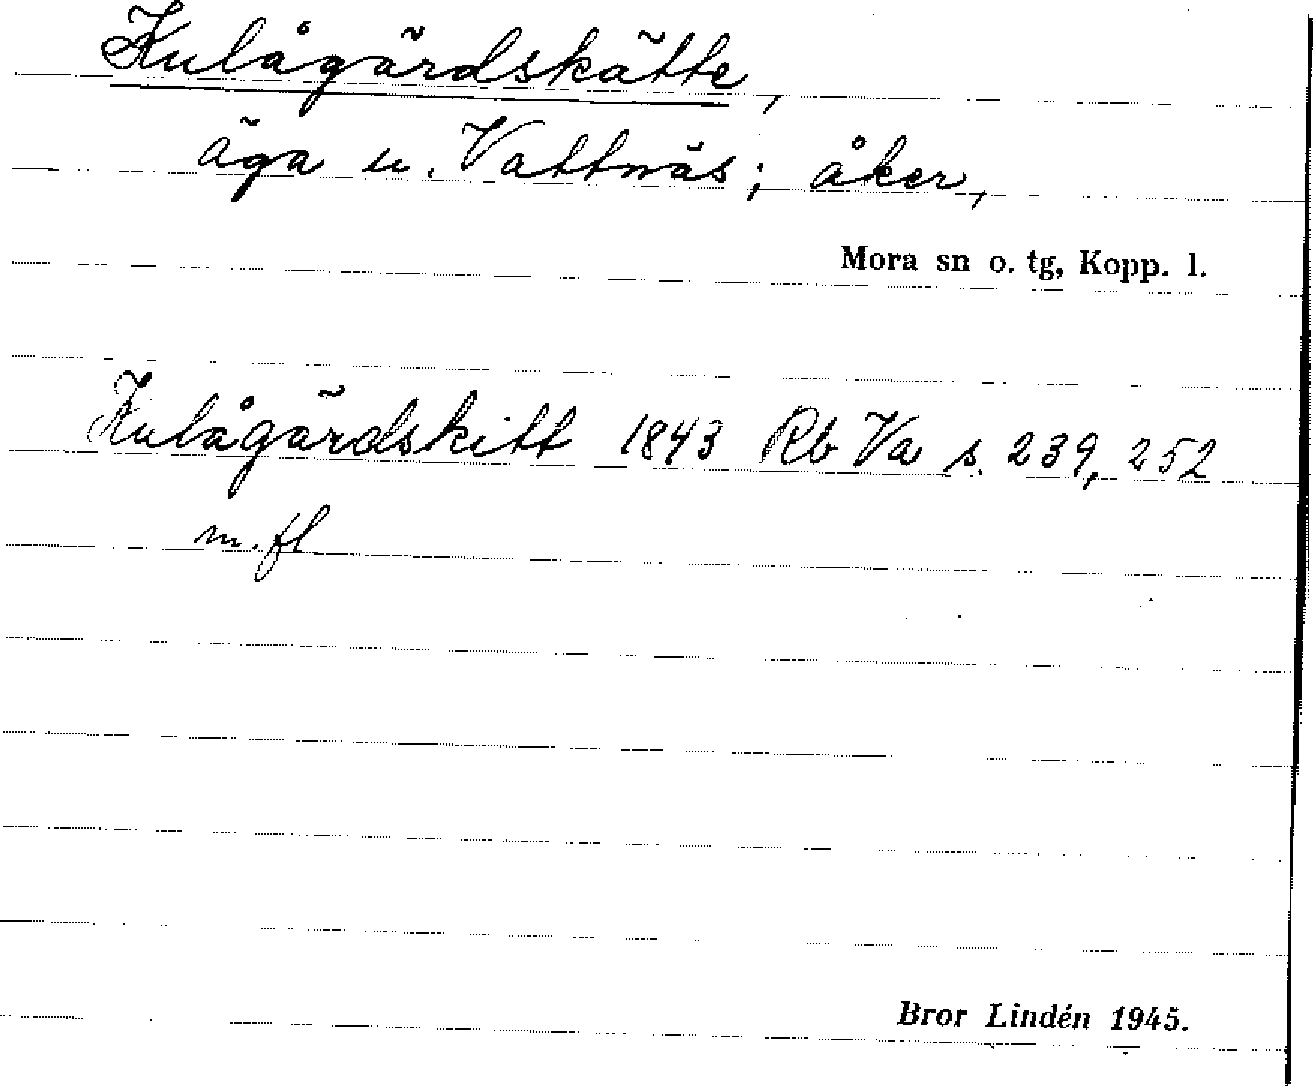 Kulågärdskätte,
äga u. Vattnäs; åker,
Mora sn o. tg, Kopp. l.
Kulågärdskitt 1843 Rb Va s. 239, 252
m. fl
Bror Lindén 1945.